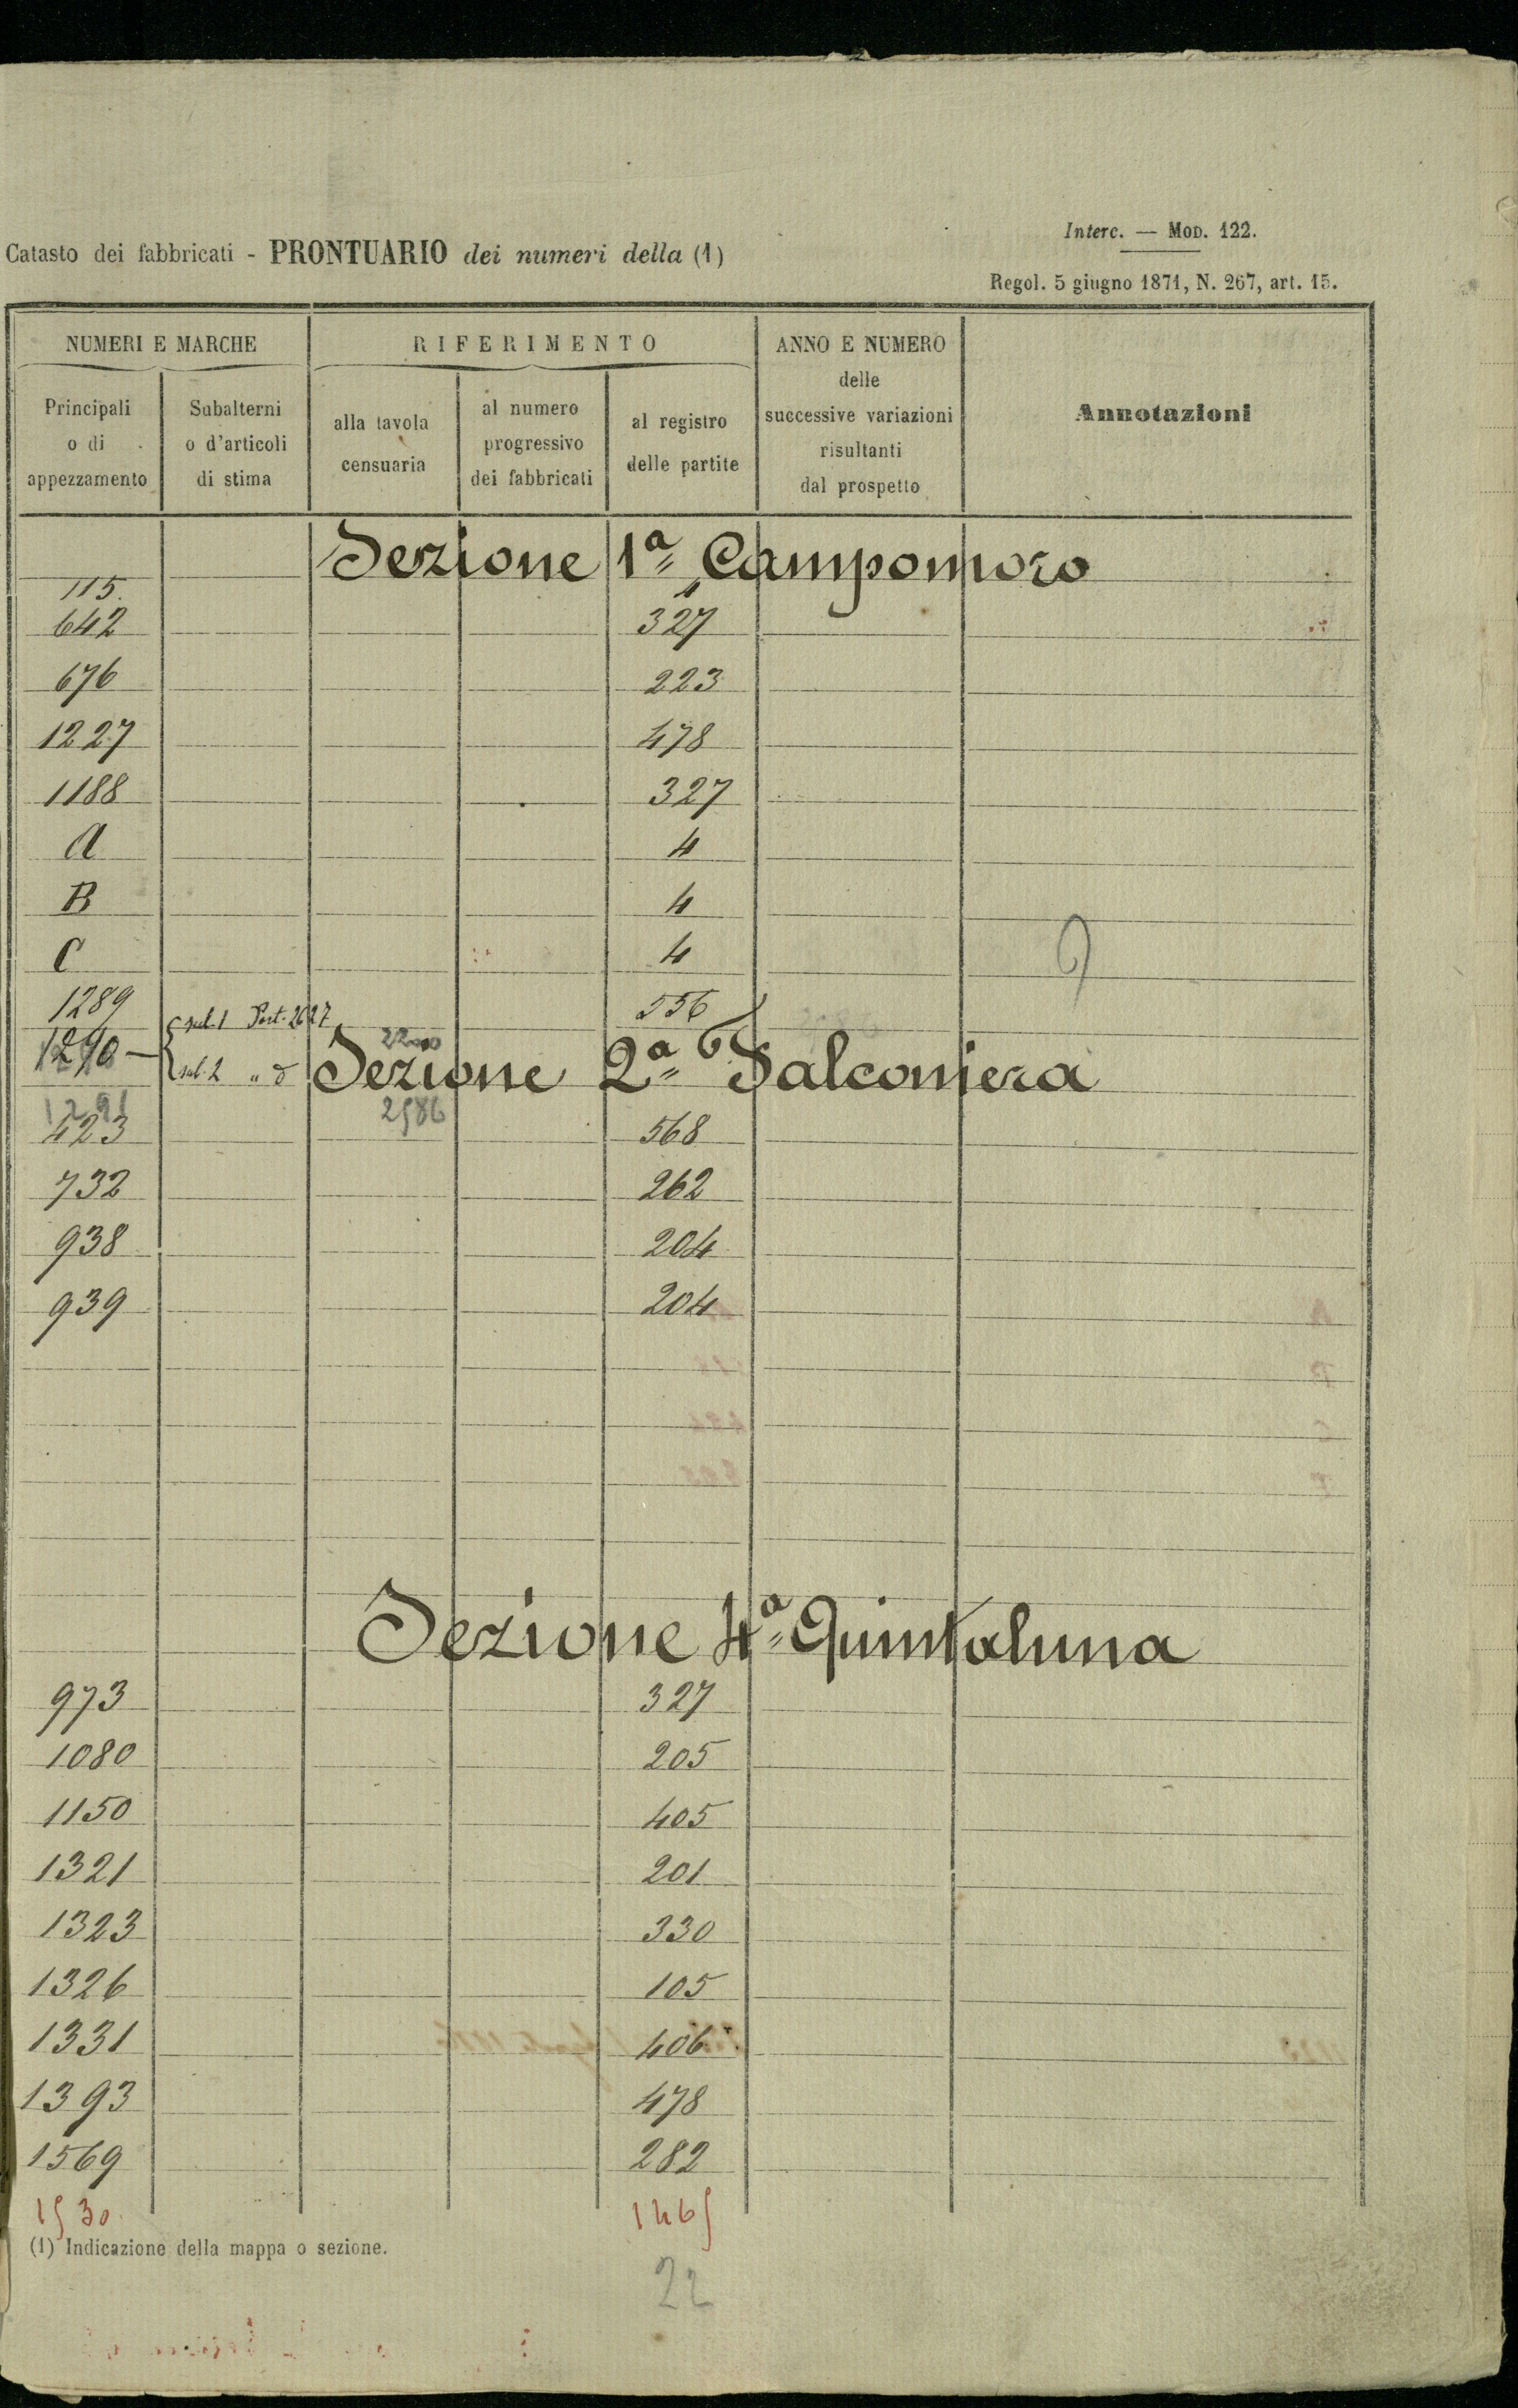 Interc. — Mod. 122.
Catasto dei fabbricati - PRONTUARIO dei numeri della (1)
Regol. 5 giugno 1871, N. 267, art. 15.
NUMERI E MARCHE RIFERIMENTO ANNO E NUMERO delle successive variazioni risultanti dal prospetto Annotazioni
Principali o di appezzamento Subalterni o d'articoli di stima alla tavola censuaria al numero progressivo dei fabbricati al registro delle partite
Sezione 1a Campomoro
115.
642 327
676 223
1227 478
1188 327
A 4
B 4
C 4
1289 556
1290 sub. 1 Part. 2627
sub 2 "
Sezione 2a Falconiera
1291 2586
423 568
732 262
938 204
939 204
Sezione 4a Quintaluna
973 327
1080 205
1150 405
1321 201
1323 330
1326 105
1331 406
1393 478
1569 282
1530 1465
(1) Indicazione della mappa o sezione.
22